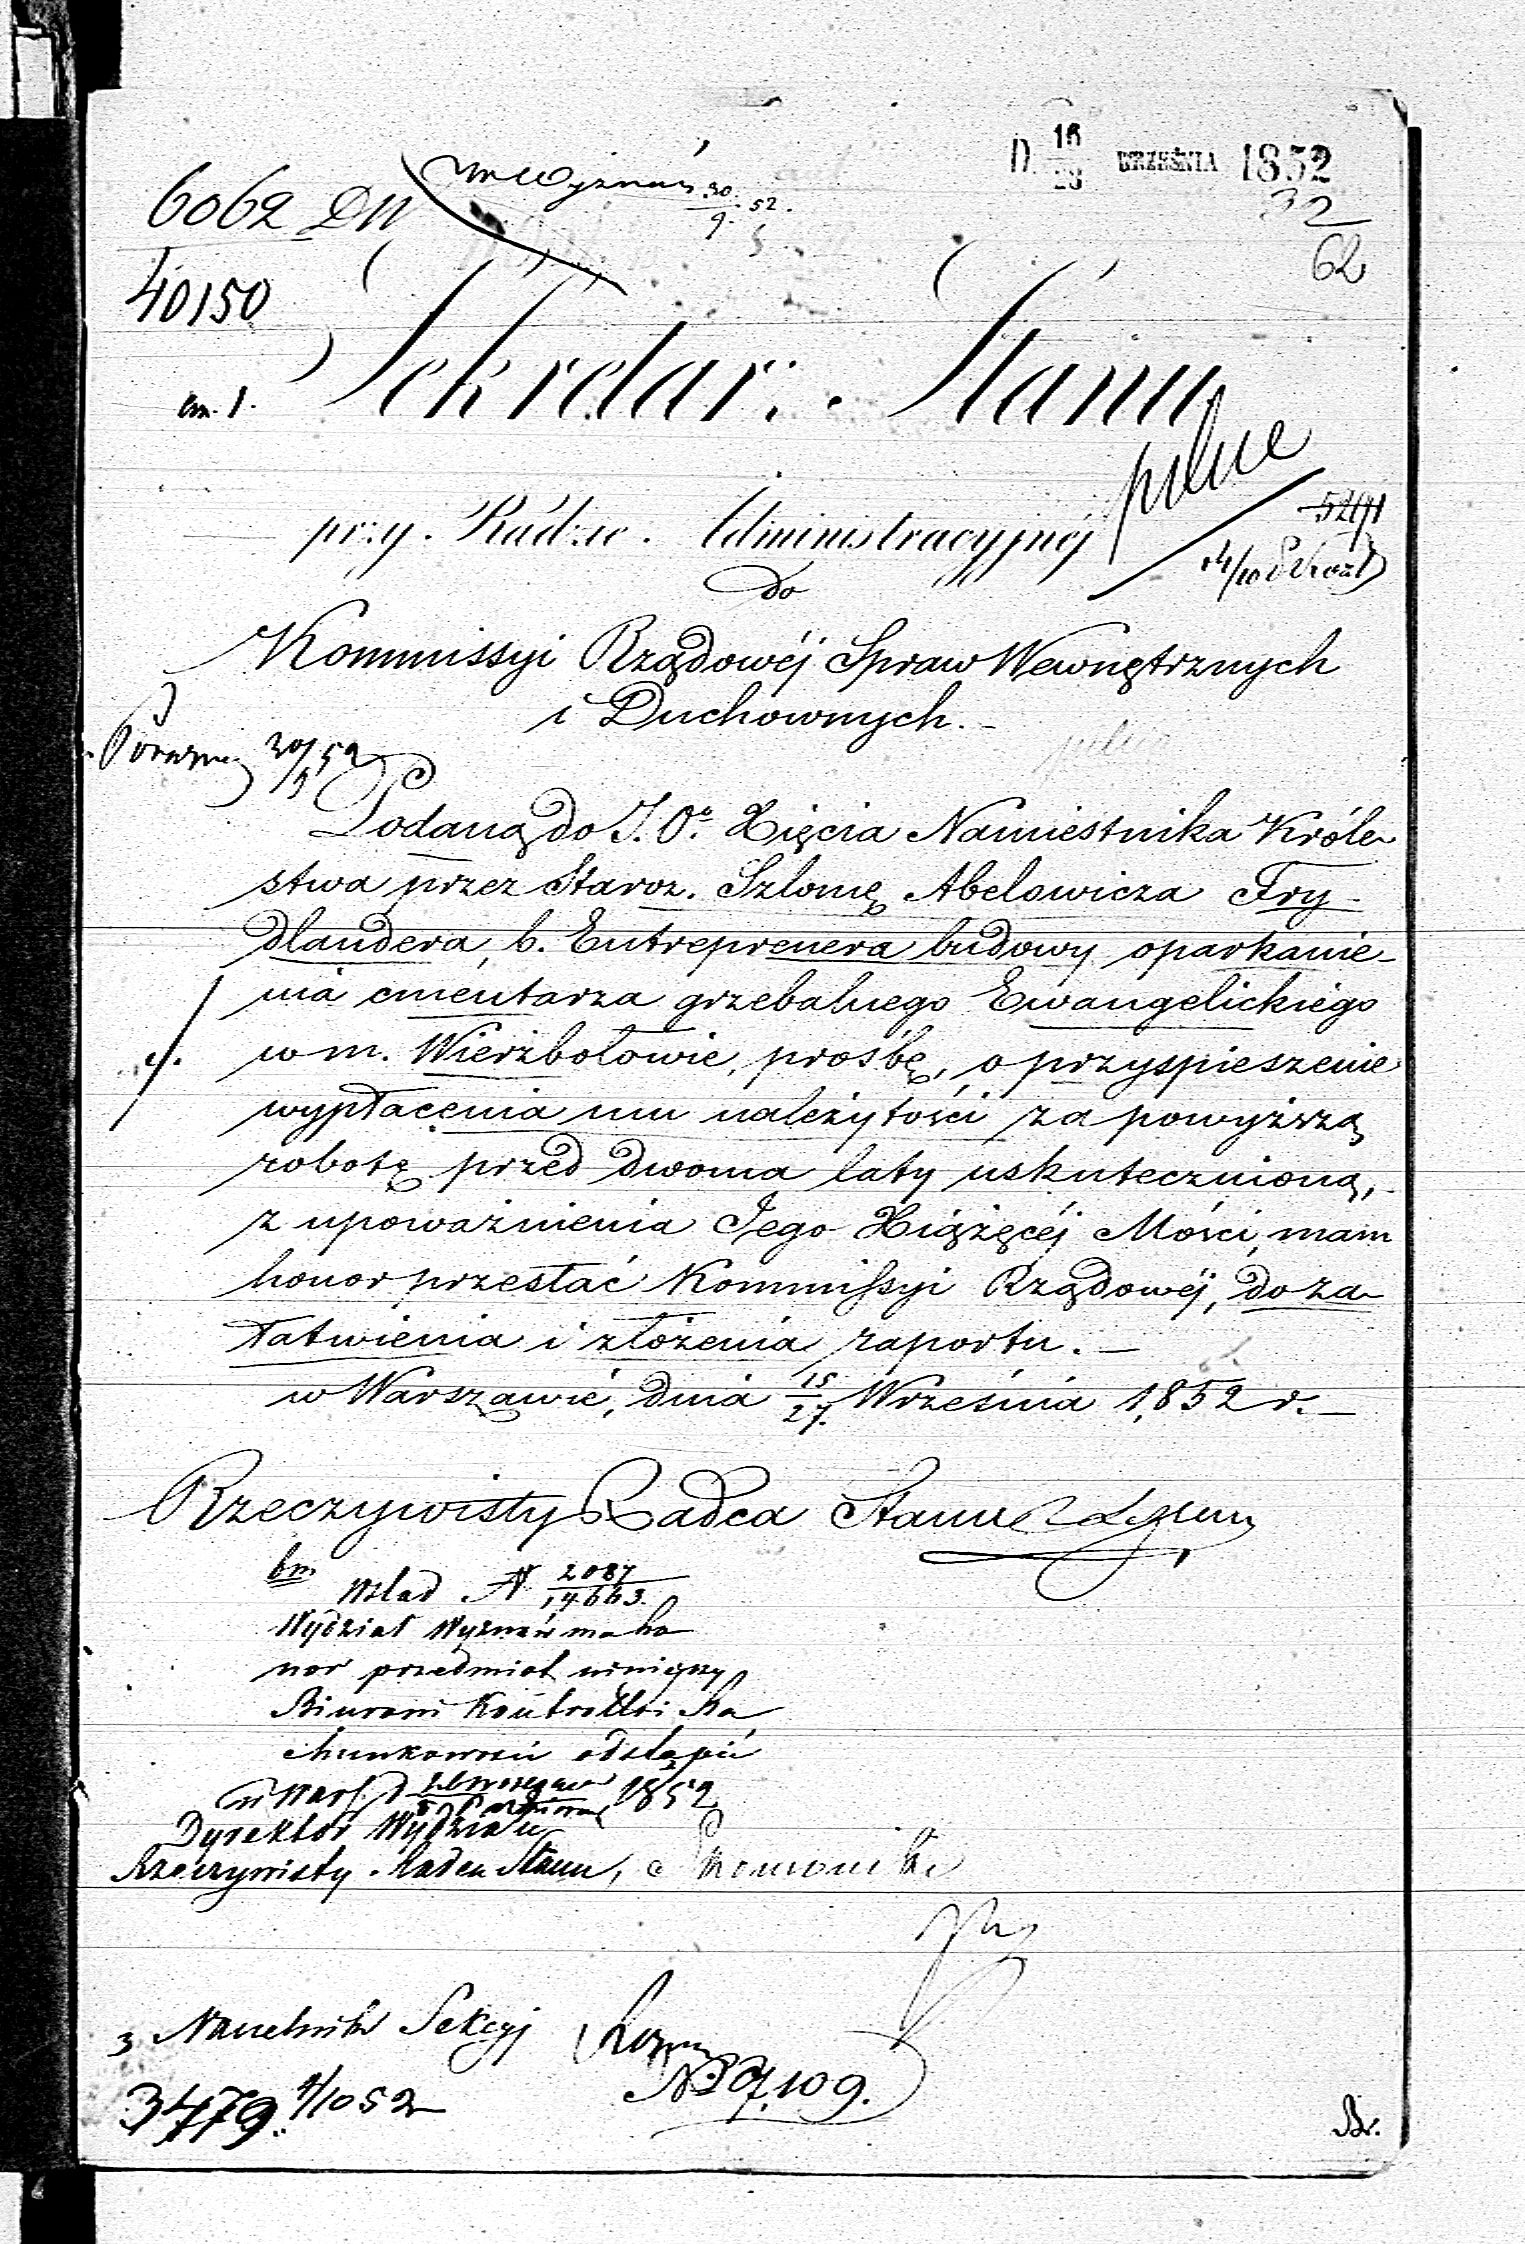 D. 16/28 WRZEŚNIA 1852
6062 DW
30/9 52.
32
62
40150
Sekretarz Stanu
an. 1.
pilne
przy Radzie Administracyjnéj
do
Kommissyi Rządowéj Spraw Wewnętrznych
i Duchownych.
30/9 52
Podaną do J. O. Xięcia Namiestnika Króle-
stwa przez Staroz. Szlomę Abelowicza Fry-
dlandera, b. Entreprenera budowy oparkanie-
nia cmentarza grzebalnego Ewangelickiego
w m. Wierzbołowie, prośbę, o przyspieszenie
wypłacenia mu należytości za powyższą
robotę przed dwoma laty uskutecznioną,
z upoważnienia Jego Xiążęcéj Mości, mam
honor przesłać Kommissyi Rządowéj, do za-
łatwienia i złożenia raportu.
w Warszawie, dnia 15/27 Września 1852 r.
Rzeczywisty Radca Stanu
bm
wślad N 2087/14663.
Wydział Wyznań ma ho
nor przedmiot niniejszy
Biurowi Kontrolli Ra
chunkowości odstąpić
w Warsz. D 1852
Dyrektor Wydziału
Rzeczywisty Radca Stanu,
Naczelnik Sekcyj
N 37,109.
3479. 4/10 52
Br.